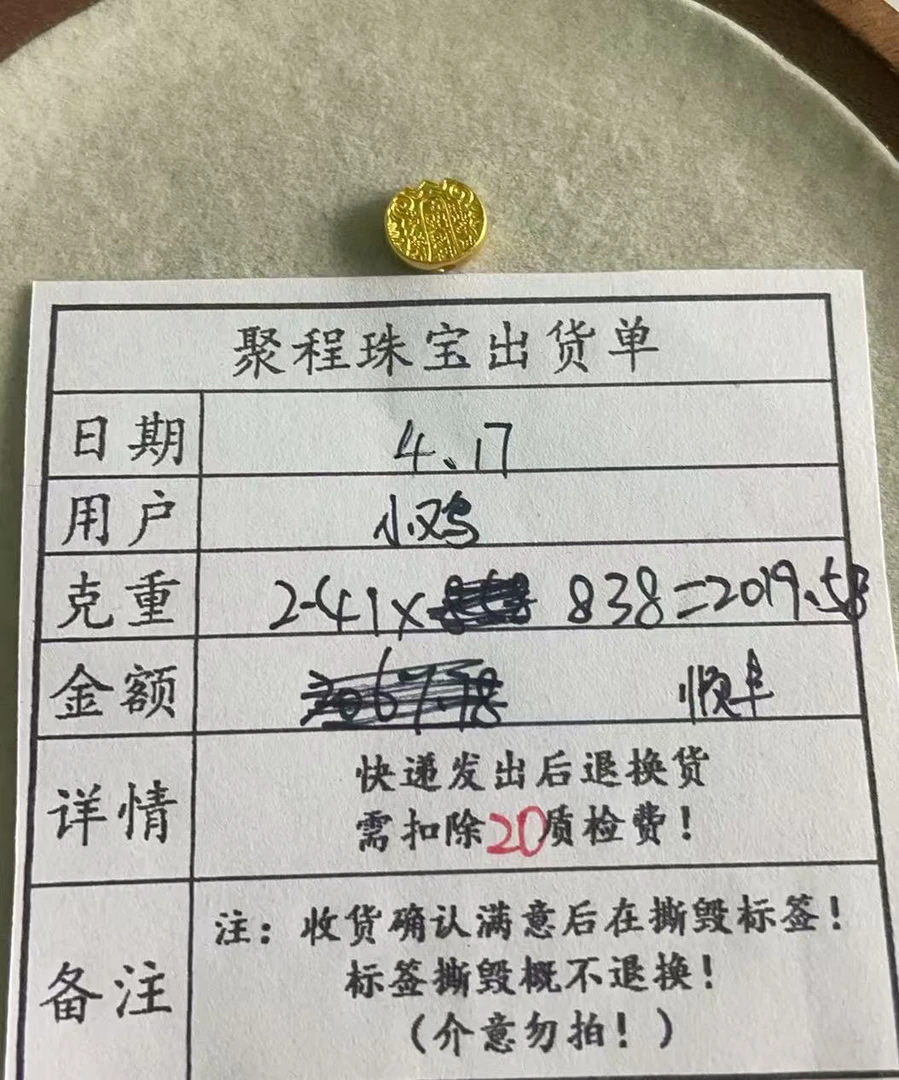 聚程珠宝出货单
日期 4.17
用户 小鸡
克重 2.41× 838=2019.58
金额 顺丰
详情 快递发出后退换货
需扣除20质检费！
备注 注：收货确认满意后在撕毁标签！
标签撕毁概不退换！
（介意勿拍！）